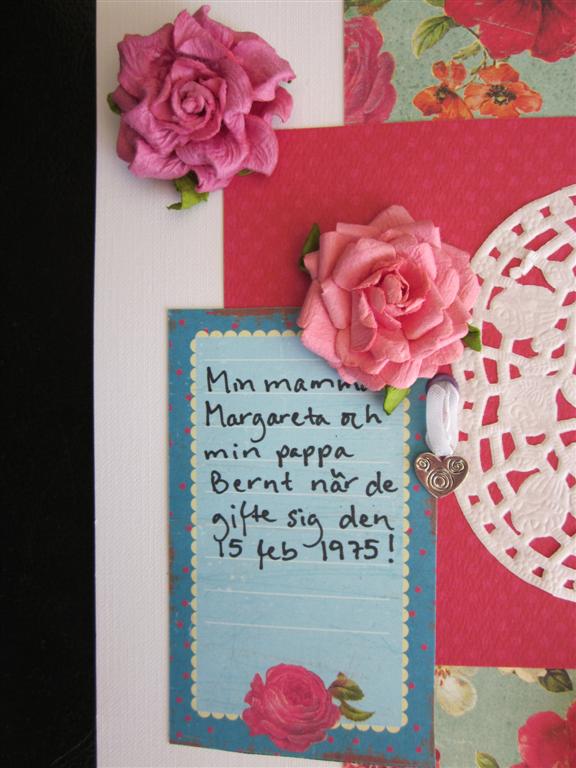 Min mamma
Margareta och
min pappa
Bernt när de
gifte sig den
15 feb 1975!